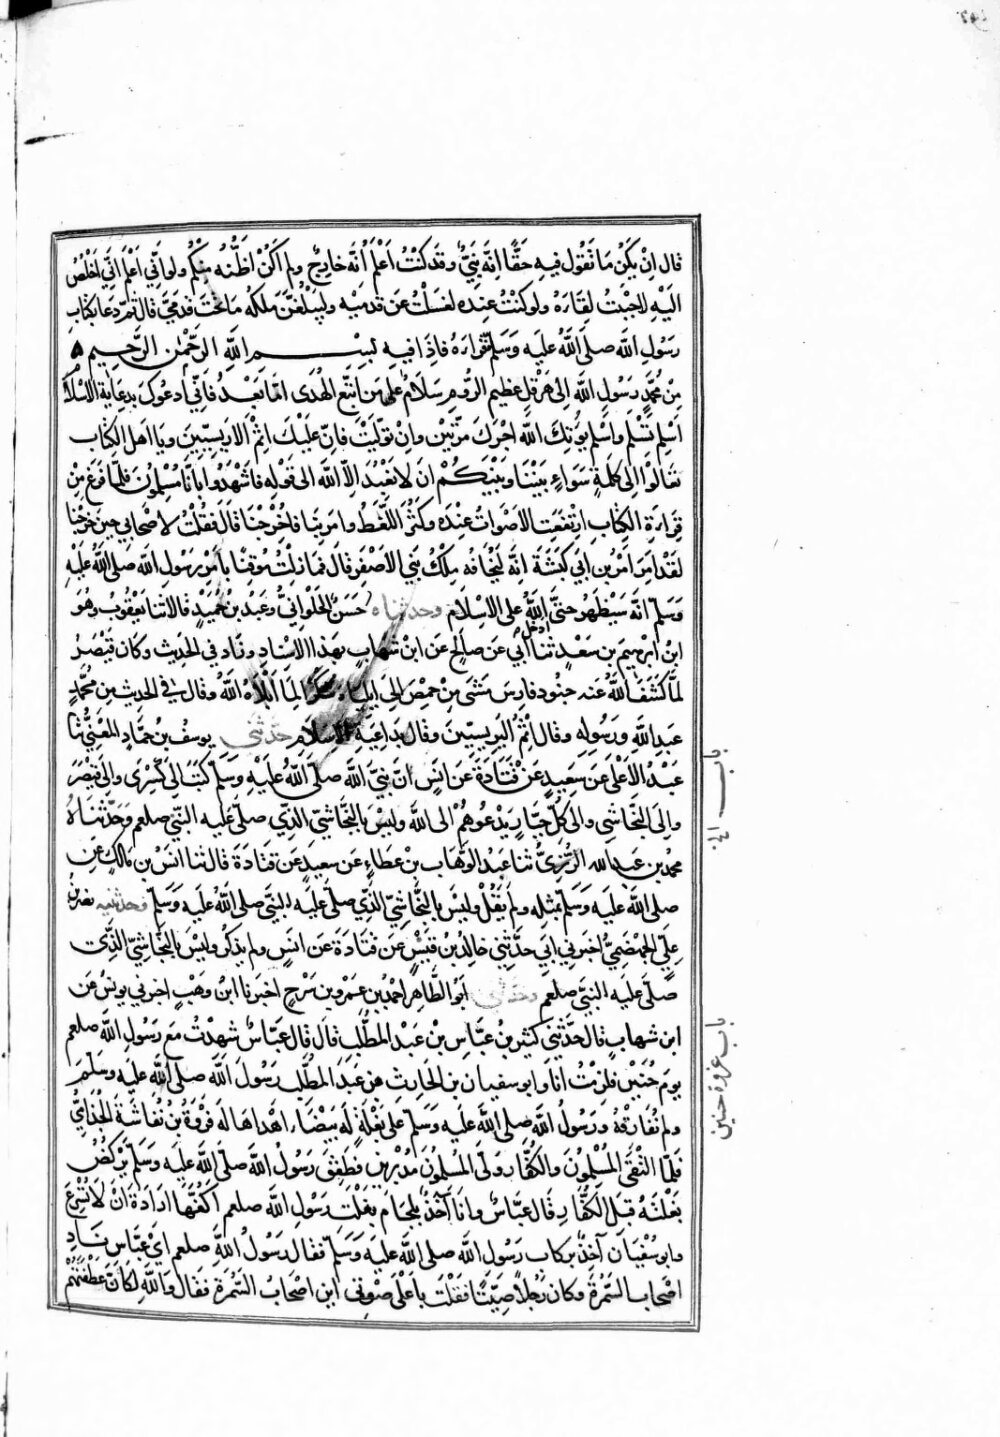 قال ان يكن ما تقول فيه حقا انه نبي وقد كنت اعلم انه خارج ولم اكن اظنه منكم ولو اني اعلم اني اخلص
اليه لاحببت لقاءه ولو كنت عنده لغسلت عن قدميه وليبلغن ملكه ما تحت قدمي قال ثم دعا بكتاب
رسول الله صلى الله عليه وسلم فقراءه فاذا فيه بسم الله الرحمن الرحيم ه
من محمد رسول الله الى هرقل عظيم الروم سلام على من اتبع الهدى اما بعد فاني ادعوك بدعاية الاسلام
اسلم تسلم واسلم يؤتك الله اجرك مرتين وان توليت فان عليك اثم الاريسيين ويا اهل الكتاب
تعالوا الى كلمة سواء بيننا وبينكم ان لا نعبد الا الله الى قوله فاشهدوا بانا مسلمون فلما فرغ من
قراءة الكتاب ارتفعت الاصوات عنده وكثر اللغط وامر بنا فاخرجنا قال فقلت لاصحابي حين خرجنا
لقد امر امر بن ابي كبشة انه ليخافه ملك بني الاصفر قال فما زلت موقنا بامر رسول الله صلى الله عليه
وسلم انه سيظهر حتى ادخل الله على الاسلام وحدثناه حسن الحلواني وعبد بن حميد قالا ثنا يعقوب وهو
ابن ابرهيم بن سعد ثنا ابي عن صالح عن ابن شهاب بهذا الاسناد وزاد في الحديث وكان قيصر
لما كشف الله عنه جنود فارس مشى من حمص الى ايلياء شكرا لما ابلاه الله وقال في الحديث من محمد
عبد الله ورسوله وقال اثم اليريسيين وقال بداعية الاسلام حدثني يوسف بن حماد المعني ثنا
عبد الاعلى عن سعيد عن قتادة عن انس ان نبي الله صلى الله عليه وسلم كتب الى كسرى والى قيصر
والى النجاشي والى كل جبار يدعوهم الى الله وليس بالنجاشي الذي صلى عليه النبي صلعم وحدثناه
محمد بن عبد الله الرزي ثنا عبد الوهاب بن عطاء عن سعيد عن قتادة قال ثنا انس بن مالك عن
صلى الله عليه وسلم بمثله ولم يقل وليس بالنجاشي الذي صلى عليه النبي صلى الله عليه وسلم وحدثنيه نصر بن
علي الجهضمي اخبرني ابي حدثني خالد بن قيس عن قتادة عن انس ولم يذكر وليس بالنجاشي الذي
صلى عليه النبي صلعم وحدثني ابو الطاهر احمد بن عمرو بن سرح اخبرنا ابن وهب اخبرني يونس عن
ابن شهاب قال حدثني كثير بن عباس بن عبد المطلب قال قال عباس شهدت مع رسول الله صلعم
يوم حنين فلزمت انا وابو سفيان بن الحارث بن عبد المطلب رسول الله صلى الله عليه وسلم
ولم نفارقه ورسول الله صلى الله عليه وسلم على بغلة له بيضاء اهداها له فروة بن نفاثة الجذامي
فلما التقى المسلمون والكفار ولى المسلمون مدبرين فطفق رسول الله صلى الله عليه وسلم يركض
بغلته قبل الكفار قال عباس وانا آخذ بلجام بغلة رسول الله صلعم اكفها ارادة ان لا تسرع
وابو سفيان آخذ بركاب رسول الله صلى الله عليه وسلم فقال رسول الله صلعم اي عباس ناد
اصحاب السمرة وكان رجلا صيتا فقلت باعلى صوتي اين اصحاب السمرة فقال والله لكان عطفتهم
باب
باب غزوة حنين